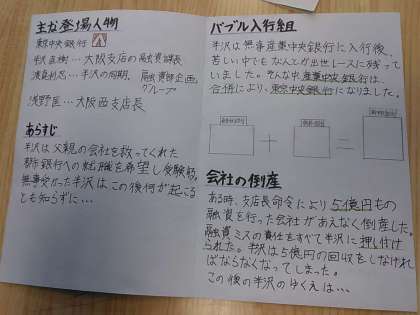 主な登場人物
東京中央銀行
半沢直樹…大阪支店の融資課長
渡真利忍…半沢の同期、融資部企画グループ
浅野匡…大阪西支店長
あらすじ
半沢は父親の会社を救ってくれた
銀行への就職を希望し受験、
無事受かった半沢はこの後何が起こる
とも知らずに…
バブル入行組
半沢は無事産業中央銀行に入行後、
若い中でもなんとか出世レースに残って
いました。そんな中、産業中央銀行は、
合併により、東京中央銀行になりました。
+
=
会社の倒産
ある時、支店長命令により5億円もの
融資を行った会社があえなく倒産した。
融資ミスの責任をすべて半沢に押し付け
られた。半沢は5億円の回収をしなけれ
ばならなくなってしまった。
この後の半沢のゆくえは…